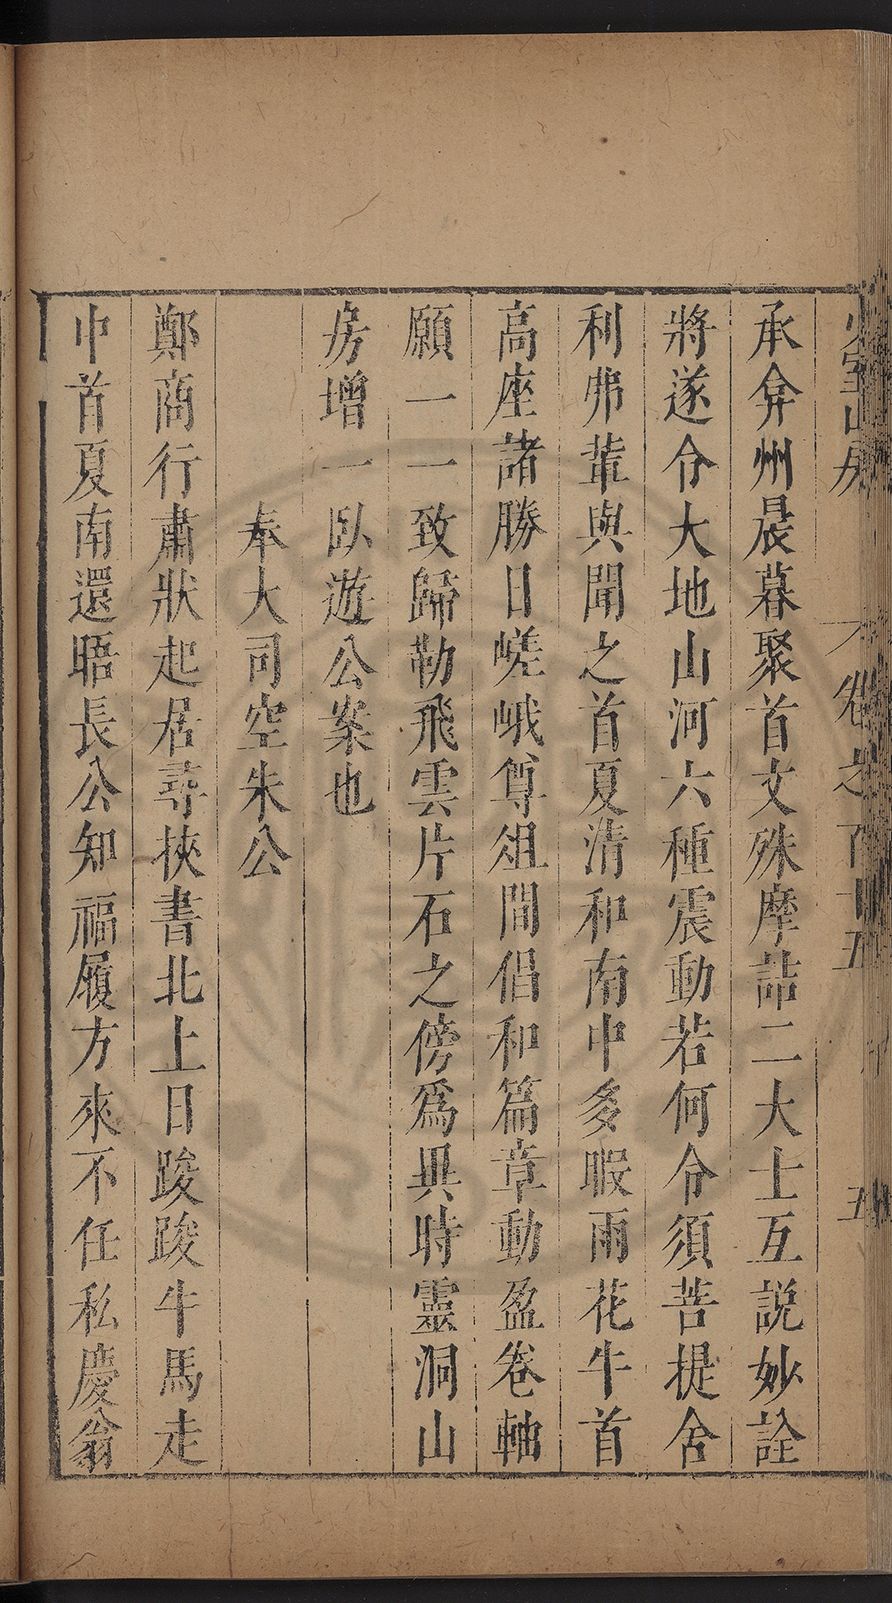 少室山房　卷之百十五　五
承弇州晨暮聚首文殊摩詰二大士互説妙詮
將遂令大地山河六種震動若何令須菩提舍
利弗輩與聞之首夏清和南中多暇雨花牛首
高座諸勝日嵯峨尊俎間倡和篇章動盈卷軸
願一一致歸勒飛雲片石之傍爲異時靈洞山
房增一臥遊公案也
奉大司空朱公
鄭商行肅狀起居尋挾書北上日踆踆牛馬走
中首夏南還晤長公知福履方來不任私慶翁